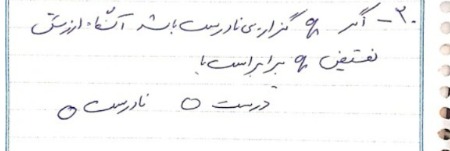 ۳۰- اگر q گزاره‌ی نادرست باشد آنگاه ارزش
نقیض q برابر است با
درست ○ نادرست ○